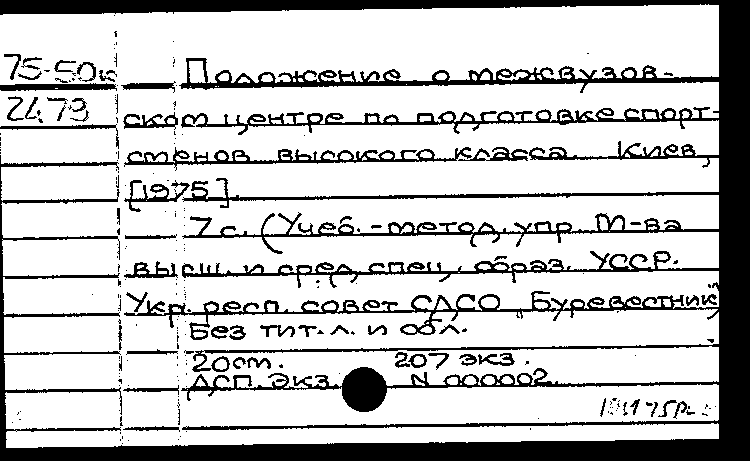 75-50к Положение о межвузов-
2479 ском центре по подготовке спорт-
сменов высокого класса. Киев,
[1975].
7 с. (Учеб.-метод. упр. М-ва
высш. и сред. спец. образ. УССР.
Укр. респ. совет СДСО „Буревестник")
Без тит. л. и обл.
20 см. 207 экз.
ДСП. Экз. N 000002.